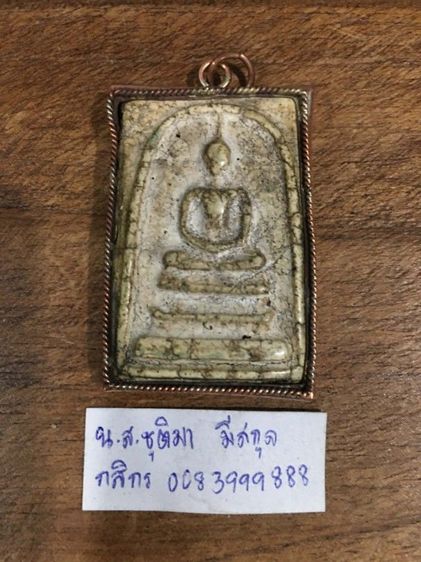 น.ส.ชุติมา มีสกุล
กสิกร 0083999888